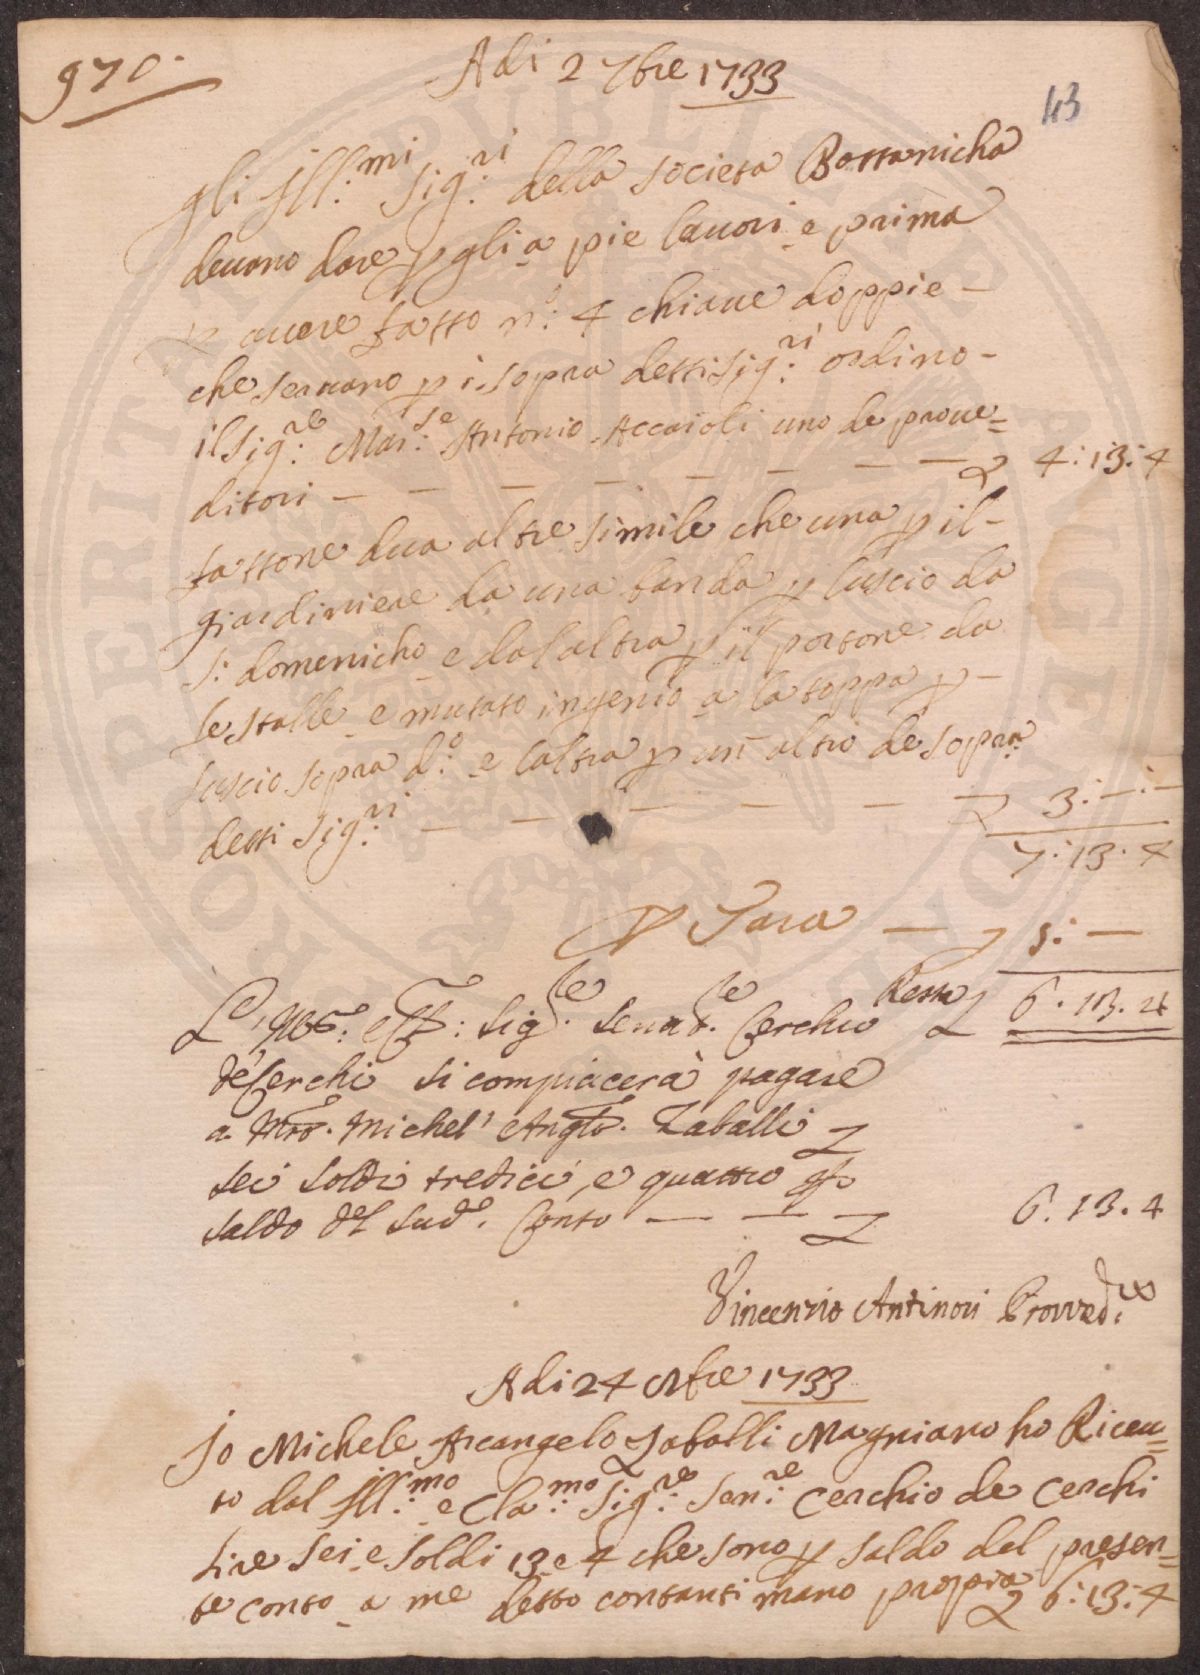 970.
Adi 2 7bre 1733
43
gli Ill:mi Sig:ri della Societa Bottanicha
deuono dare p gli a pie lauori e prima
p auere fatto n:o 4 chiaue doppie -
che seruano p i sopra detti Sig:ri ordino -
il Sig:re Mar:se Antonio Accaioli uno de proue=
ditori — — — — — — — — £ 4:13:4
fattone dua altre simile che una p il -
giardiniere da una banda p luscio da
S: domenicho e dal altra p il portone da
le stalle e mutato ingenio a la toppa p -
luscio sopra d:o e laltra p un altro de sopra
detti Sig:ri — — — — — — £ 3:—:—
7:13:4
p Tara — — £ 1:—
Resta £ 6.13.4
L'Ill. e Sig.re Senat.re Cerchio
de Cerchi si compiacerà pagare
a Mro. Michel' Anglo. Zaballi £
sei soldi tredici, e quattro p
saldo del sud.o Conto — — — £ 6.13.4
Vincenzio Antinori Provved.re
Adi 24 Obre 1733
Io Michele Arcangelo Zaballi Magniano ho Riceu=
to dal Ill:mo e Cla:mo Sig:re Sen:re Cerchio de Cerchi
Lire Sei e Soldi 13 e 4 che sono p saldo del presen=
te conto a me detto contanti mano propria £ 6:13:4